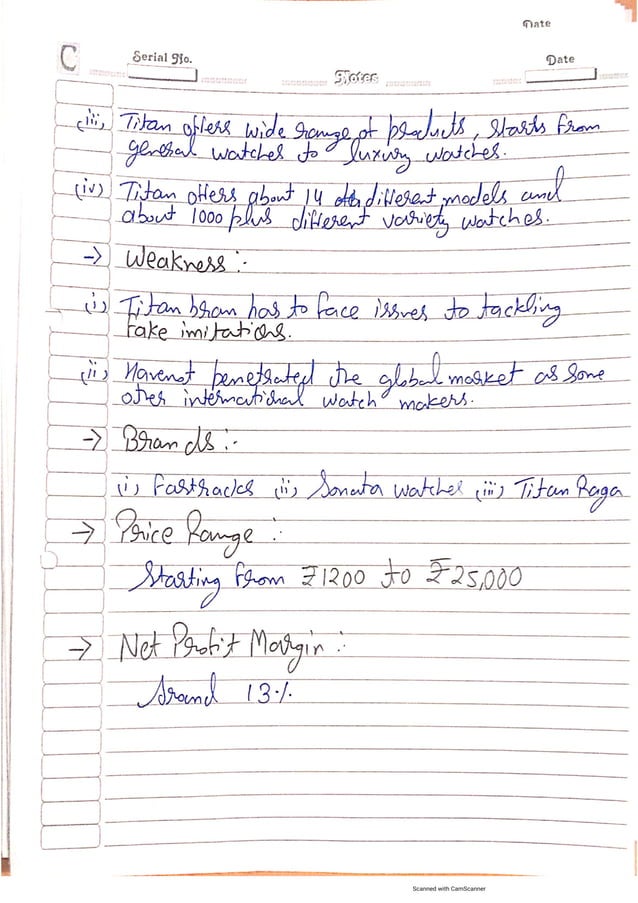 Date
C
Serial No.
Notes
Date
(iii) Titan offers wide range of products, starts from
general watches to luxury watches.
(iv) Titan offers about 14 different models and
about 1000 plus different variety watches.
→ Weakness :-
(i) Titan bran has to face issues to tackling
fake imitations.
(ii) Havenot penetrated the global market as some
other international watch makers.
→ Brands :-
(i) Fastracks (ii) Sonata watches (iii) Titan Raga
→ Price Range :-
Starting from ₹1200 to ₹25,000
→ Net Profit Margin :-
Around 13%
Scanned with CamScanner